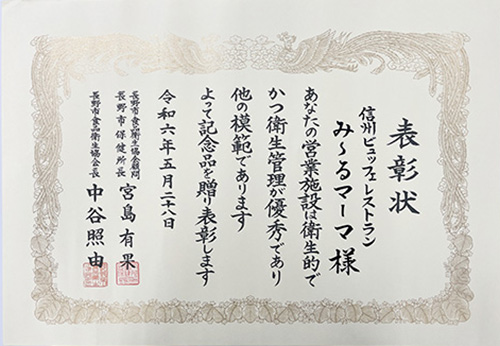 表彰状
信州ビュッフェレストラン
み〜るマーマ様
あなたの営業施設は衛生的で
かつ衛生管理が優秀であり
他の模範であります
よって記念品を贈り表彰します
令和六年五月二十八日
長野市食品衛生協会顧問
長野市保健所長 宮島有果
長野市食品衛生協会会長 中谷照由